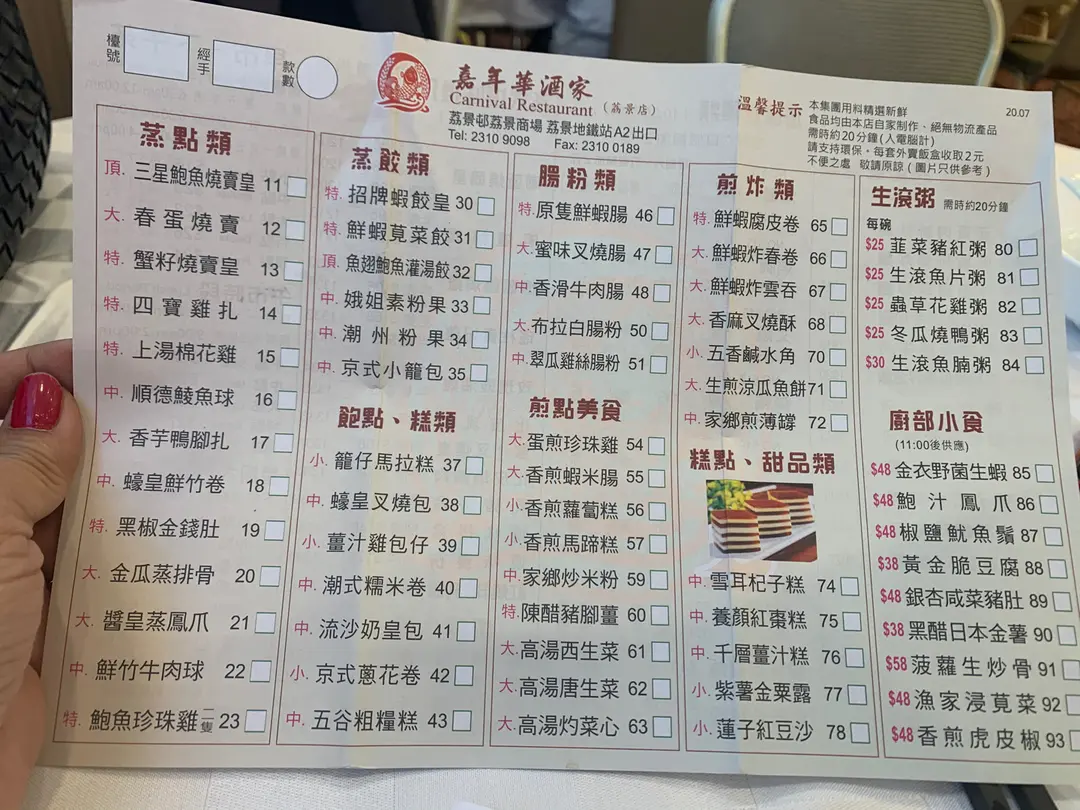 檯號
經手
款數
嘉年華酒家
Carnival Restaurant (荔景店)
荔景邨荔景商場 荔景地鐵站A2出口
Tel: 2310 9098 Fax: 2310 0189
溫馨提示
本集團用料精選新鮮
食品均由本店自家制作、絕無物流產品
需時約20分鐘(人電腦計)
請支持環保,每套外賣飯盒收取2元
不便之處 敬請原諒(圖片只供參考)
20.07
蒸點類
頂. 三星鮑魚燒賣皇 11
大. 春蛋燒賣 12
特. 蟹籽燒賣皇 13
特. 四寶雞扎 14
特. 上湯棉花雞 15
中. 順德鯪魚球 16
大. 香芋鴨腳扎 17
中. 蠔皇鮮竹卷 18
特. 黑椒金錢肚 19
大. 金瓜蒸排骨 20
大. 醬皇蒸鳳爪 21
中. 鮮竹牛肉球 22
特. 鮑魚珍珠雞 二隻 23
蒸餃類
特. 招牌蝦餃皇 30
特. 鮮蝦莧菜餃 31
頂. 魚翅鮑魚灌湯餃 32
中. 娥姐素粉果 33
中. 潮州粉果 34
中. 京式小籠包 35
飽點、糕類
小. 籠仔馬拉糕 37
中. 蠔皇叉燒包 38
小. 薑汁雞包仔 39
中. 潮式糯米卷 40
中. 流沙奶皇包 41
小. 京式蔥花卷 42
中. 五谷粗糧糕 43
腸粉類
特. 原隻鮮蝦腸 46
大. 蜜味叉燒腸 47
中. 香滑牛肉腸 48
大. 布拉白腸粉 50
中. 翠瓜雞絲腸粉 51
煎點美食
大. 蛋煎珍珠雞 54
大. 香煎蝦米腸 55
小. 香煎蘿蔔糕 56
小. 香煎馬蹄糕 57
中. 家鄉炒米粉 59
特. 陳醋豬腳薑 60
大. 高湯西生菜 61
大. 高湯唐生菜 62
大. 高湯灼菜心 63
煎炸類
特. 鮮蝦腐皮卷 65
大. 鮮蝦炸春卷 66
大. 鮮蝦炸雲吞 67
大. 香麻叉燒酥 68
小. 五香鹹水角 70
大. 生煎涼瓜魚餅 71
中. 家鄉煎薄罉 72
糕點、甜品類
中. 雪耳杞子糕 74
中. 養顏紅棗糕 75
中. 千層薑汁糕 76
小. 紫薯金粟露 77
小. 蓮子紅豆沙 78
生滾粥 需時約20分鐘
每碗
$25 韮菜豬紅粥 80
$25 生滾魚片粥 81
$25 蟲草花雞粥 82
$25 冬瓜燒鴨粥 83
$30 生滾魚腩粥 84
廚部小食
(11:00後供應)
$48 金衣野菌生蝦 85
$48 鮑汁鳳爪 86
$48 椒鹽魷魚鬚 87
$38 黃金脆豆腐 88
$48 銀杏咸菜豬肚 89
$38 黑醋日本金薯 90
$58 菠蘿生炒骨 91
$48 漁家浸莧菜 92
$48 香煎虎皮椒 93